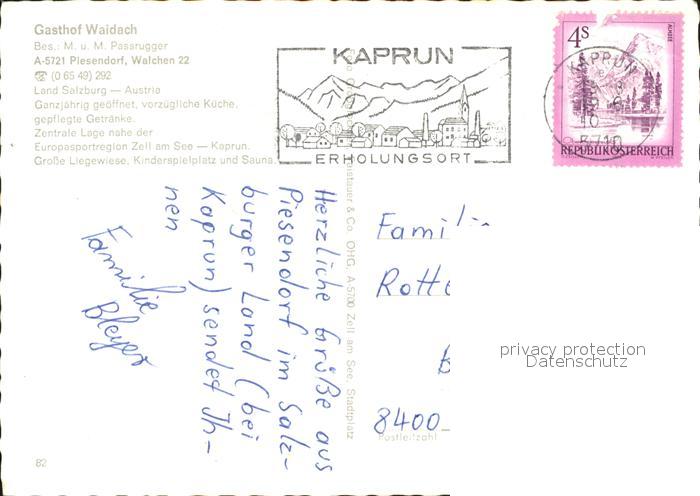 Gasthof Waidach
Bes.: M. u. M. Passrugger
A-5721 Piesendorf, Walchen 22
☎ (0 65 49) 292
Land Salzburg — Austria
Ganzjährig geöffnet, vorzügliche Küche,
gepflegte Getränke.
Zentrale Lage nahe der
Europasportregion Zell am See — Kaprun.
Große Liegewiese, Kinderspielplatz und Sauna.
KAPRUN
ERHOLUNGSORT
4s
KAPRUN
5710
REPUBLIK ÖSTERREICH
Herzliche Grüße aus
Piesendorf im Salz-
burger Land (bei
Kaprun) sendet Ih-
nen
Familie
Bleyer
& Co. OHG, A-5700 Zell am See, Stadtplatz
Famili
Rotte
8400
Postleitzahl
privacy protection
Datenschutz
82